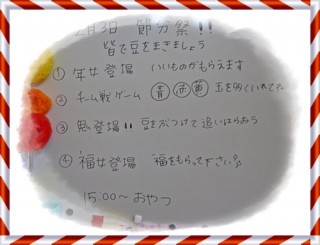 2月3日 節分祭!!
皆で豆をまきましょう
① 年女登場 いいものがもらえます
② チーム戦ゲーム 青 赤 黄 玉を多くいれて
③ 鬼登場!! 豆をぶつけて追いはらおう
④ 福女登場 福をもらって下さい♪
15:00〜おやつ